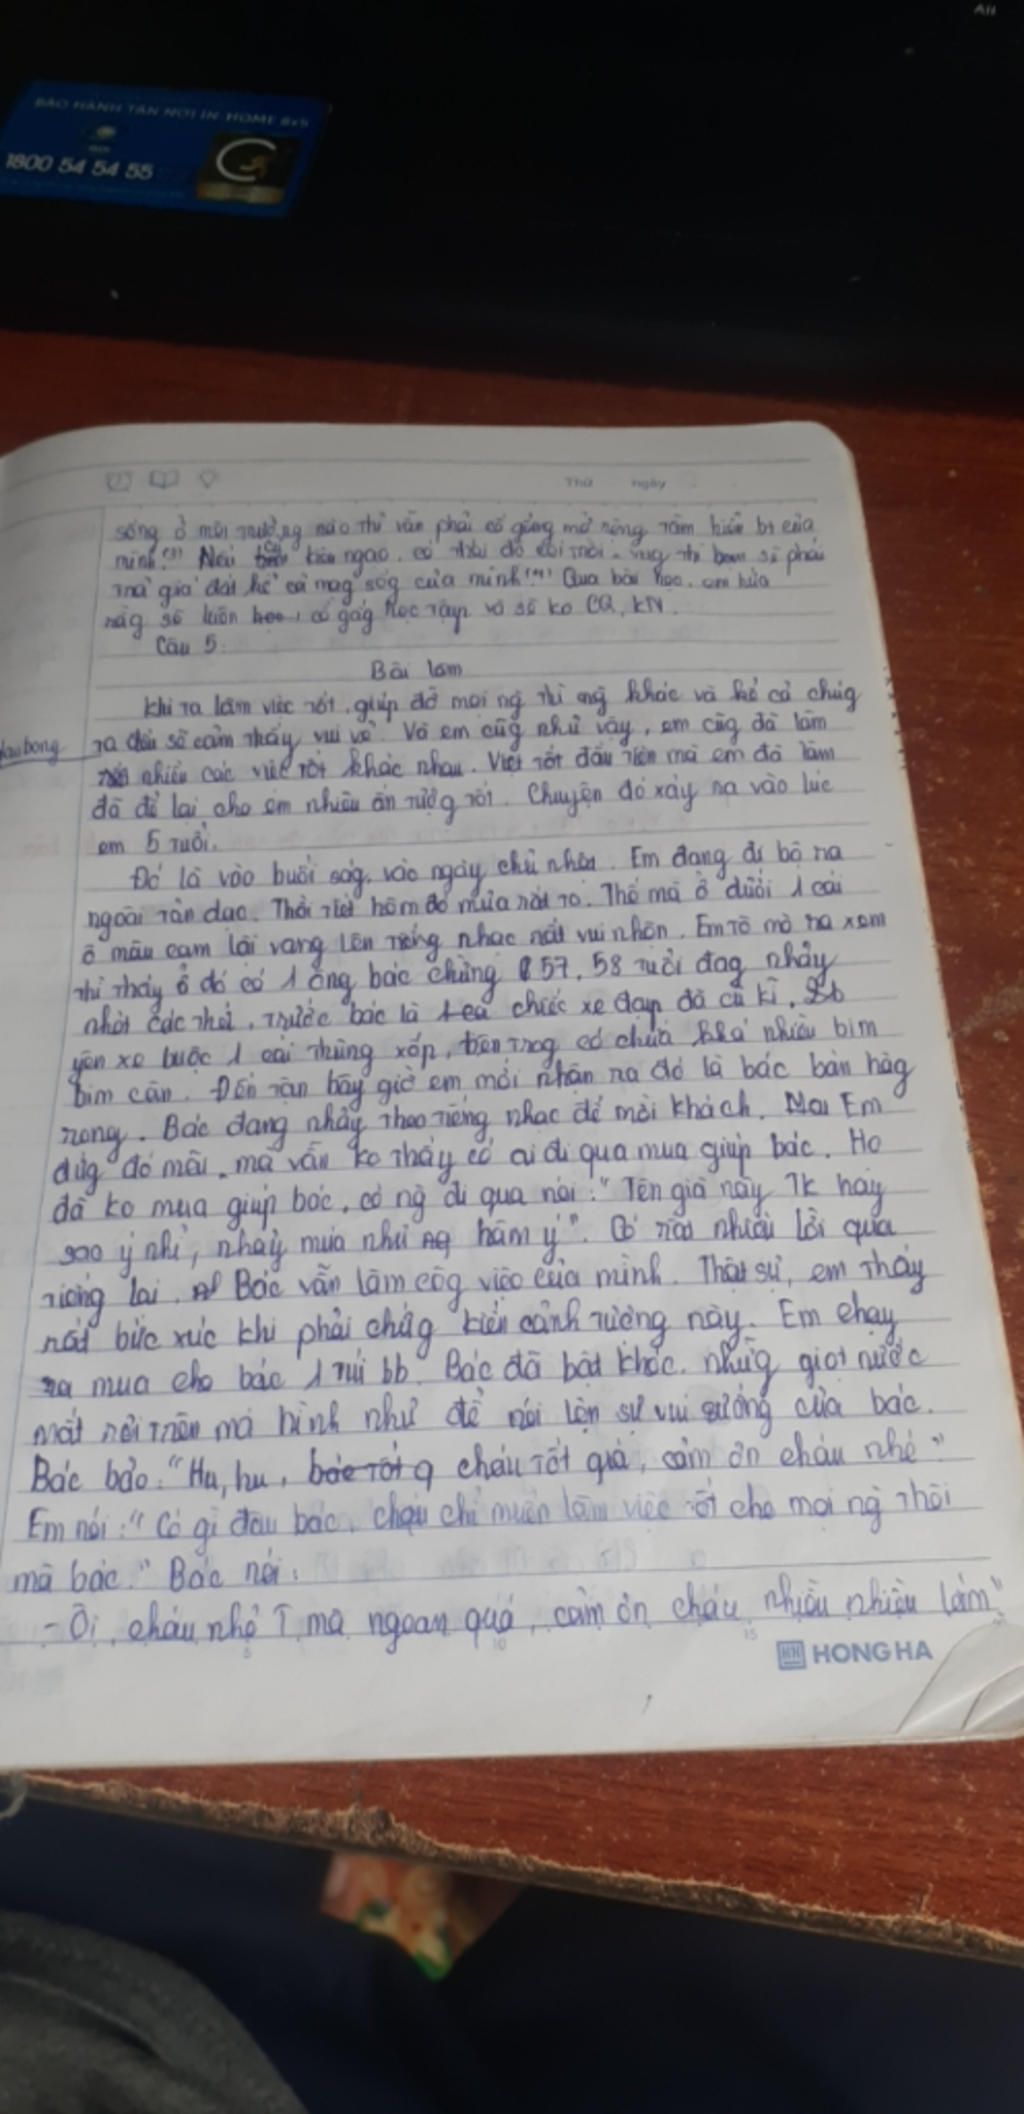 BẢO HÀNH TẬN NƠI IN-HOME
1800 54 54 55
Thứ ngày
sống ở môi trường nào thì vẫn phải cố gắng mở rộng tầm hiểu bt của
mình.(3) Nếu kiêu ngạo, có thái độ thì bạn sẽ phải
trả giá đắt kể cả mạg sốg của mình.(4) Qua bài học, em hứa
rằg sẽ luôn cố gắg học tập và sẽ ko CQ, KN.
Câu 5:
Bài làm
Khi ta làm việc tốt, giúp đỡ mọi ng thì ng khác và kể cả chúg
ta đều sẽ cảm thấy vui vẻ. Và em cũg như vậy, em cũg đã làm
nhiều các việc tốt khác nhau. Việc tốt đầu tiên mà em đã làm
đã để lại cho em nhiều ấn tượg tốt. Chuyện đó xảy ra vào lúc
em 5 tuổi.
Đó là vào buổi ság, vào ngày chủ nhật. Em đang đi bộ ra
ngoài tản dạo. Thời tiết hôm đó mưa rất to. Thế mà ở dưới 1 cái
ô màu cam lại vang lên tiếng nhạc rất vui nhộn. Em tò mò ra xem
thì thấy ở đó có 1 ông bác chừng 57, 58 tuổi đag nhảy
nhót các thứ, trước bác là chiếc xe đạp đã cũ kĩ,
yên xe buộc 1 cái thùng xốp, bên trog có chứa khá nhiều bim
bim cân. Đến tận bây giờ em mới nhận ra đó là bác bán hàg
rong. Bác đang nhảy theo tiếng nhạc để mời khách. Em
đứg đó mãi mà vẫn ko thấy có ai đi qua mua giúp bác. Họ
đã ko mua giúp bác, có ng đi qua nói: "Tên già này tk hay
sao ý nhỉ, nhảy múa như ng hâm ý". Có rất nhiều lời qua
tiếng lại. Bác vẫn làm côg việc của mình. Thật sự, em thấy
rất bức xúc khi phải chứg kiến cảnh tượng này. Em chạy
ra mua cho bác 1 túi bb. Bác đã bật khóc, nhữg giọt nước
mắt rơi trên má hình như để nói lên sự vui sướng của bác.
Bác bảo: "Hu, hu, bác tốt q cháu tốt quá, cảm ơn cháu nhé".
Em nói: "Có gì đâu bác, cháu chỉ muốn làm việc tốt cho mọi ng thôi
mà bác." Bác nói:
- Ôi, cháu nhỏ T mà ngoan quá, cảm ơn cháu nhiều nhiều lắm"
HONG HA